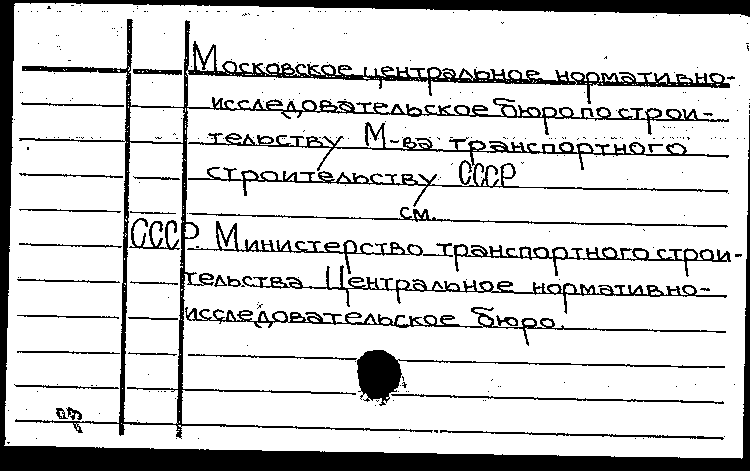 Московское центральное нормативно-
исследовательское бюро по строи-
тельству М-ва транспортного
строительству СССР
см.
СССР. Министерство транспортного строи-
тельства. Центральное нормативно-
исследовательское бюро.